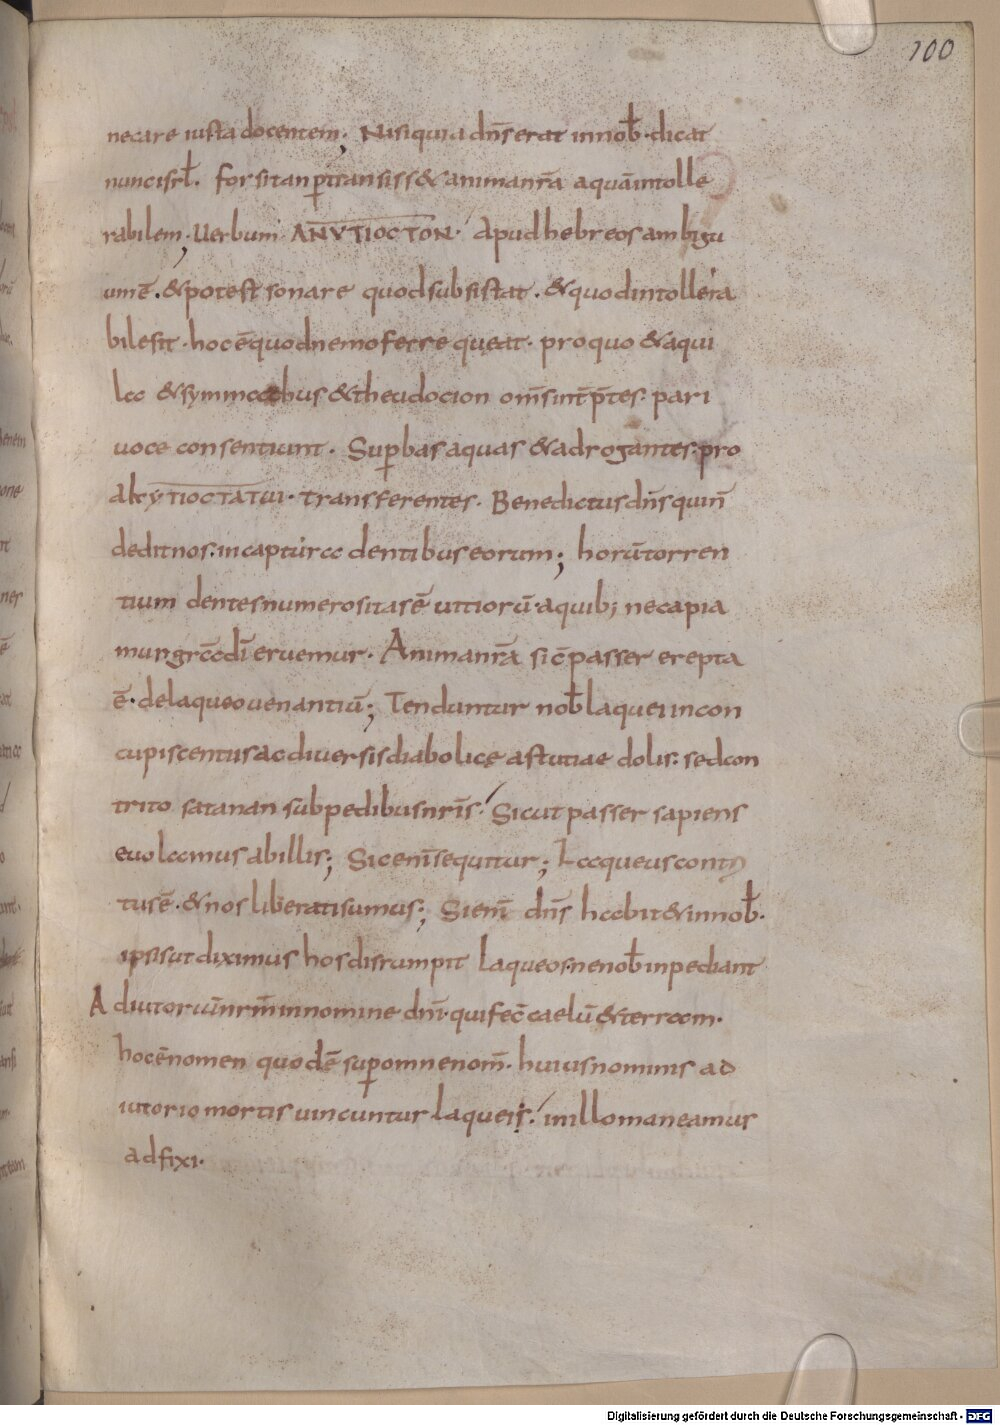 100
necare iusta docentem; Nisi quia dn̄s erat in nob̄· dicat
nunc isrl̄. forsitan ꝑtransiss& anima nr̄a aquā intolle
rabilem; Uerbum ANVTIOCTON· Apud hebreos ambigu
um ē. & potest sonare quod subsistat. & quod intollera
bile sit· hoc ē quod nemo ferre queat· pro quo & aqui
la & symmachus & theudocion om̄s int̄p̄tes· pari
uoce consentiunt. Suꝑbas aquas & adrogantes· pro
transferentes. Benedictus dn̄s qui n̄
dedit nos· in captura dentibus eorum; horū torren
tium dentes numerositas ē uitiorū· a quib; ne capia
mur gr̄a dī eruemur. Anima nr̄a sic̄ passer erepta
ē· de laqueo uenantiū; Tenduntur nob̄ laquei in con
cupiscentiis ac diuersis diabolicę astutiae dolis: sed con
trito satanan sub pedibus nr̄is· Sicut passer sapiens
euolamus ab illis; Sic enī sequitur; Laqueus contri
tus ē· & nos liberati sumus; Si enī dn̄s habit& in nob̄·
ipsis ut diximus hos disrumpit laqueos· ne nob̄ inpediant
Adiutoriū nr̄m̄ in nomine dnī· qui fec̄ caelū & terram·
hoc ē nomen quod ē suꝑ omne nom̄· huius nominis ad
iutorio mortis uincuntur laquei· in illo maneamus
adfixi·
Digitalisierung gefördert durch die Deutsche Forschungsgemeinschaft - DFG